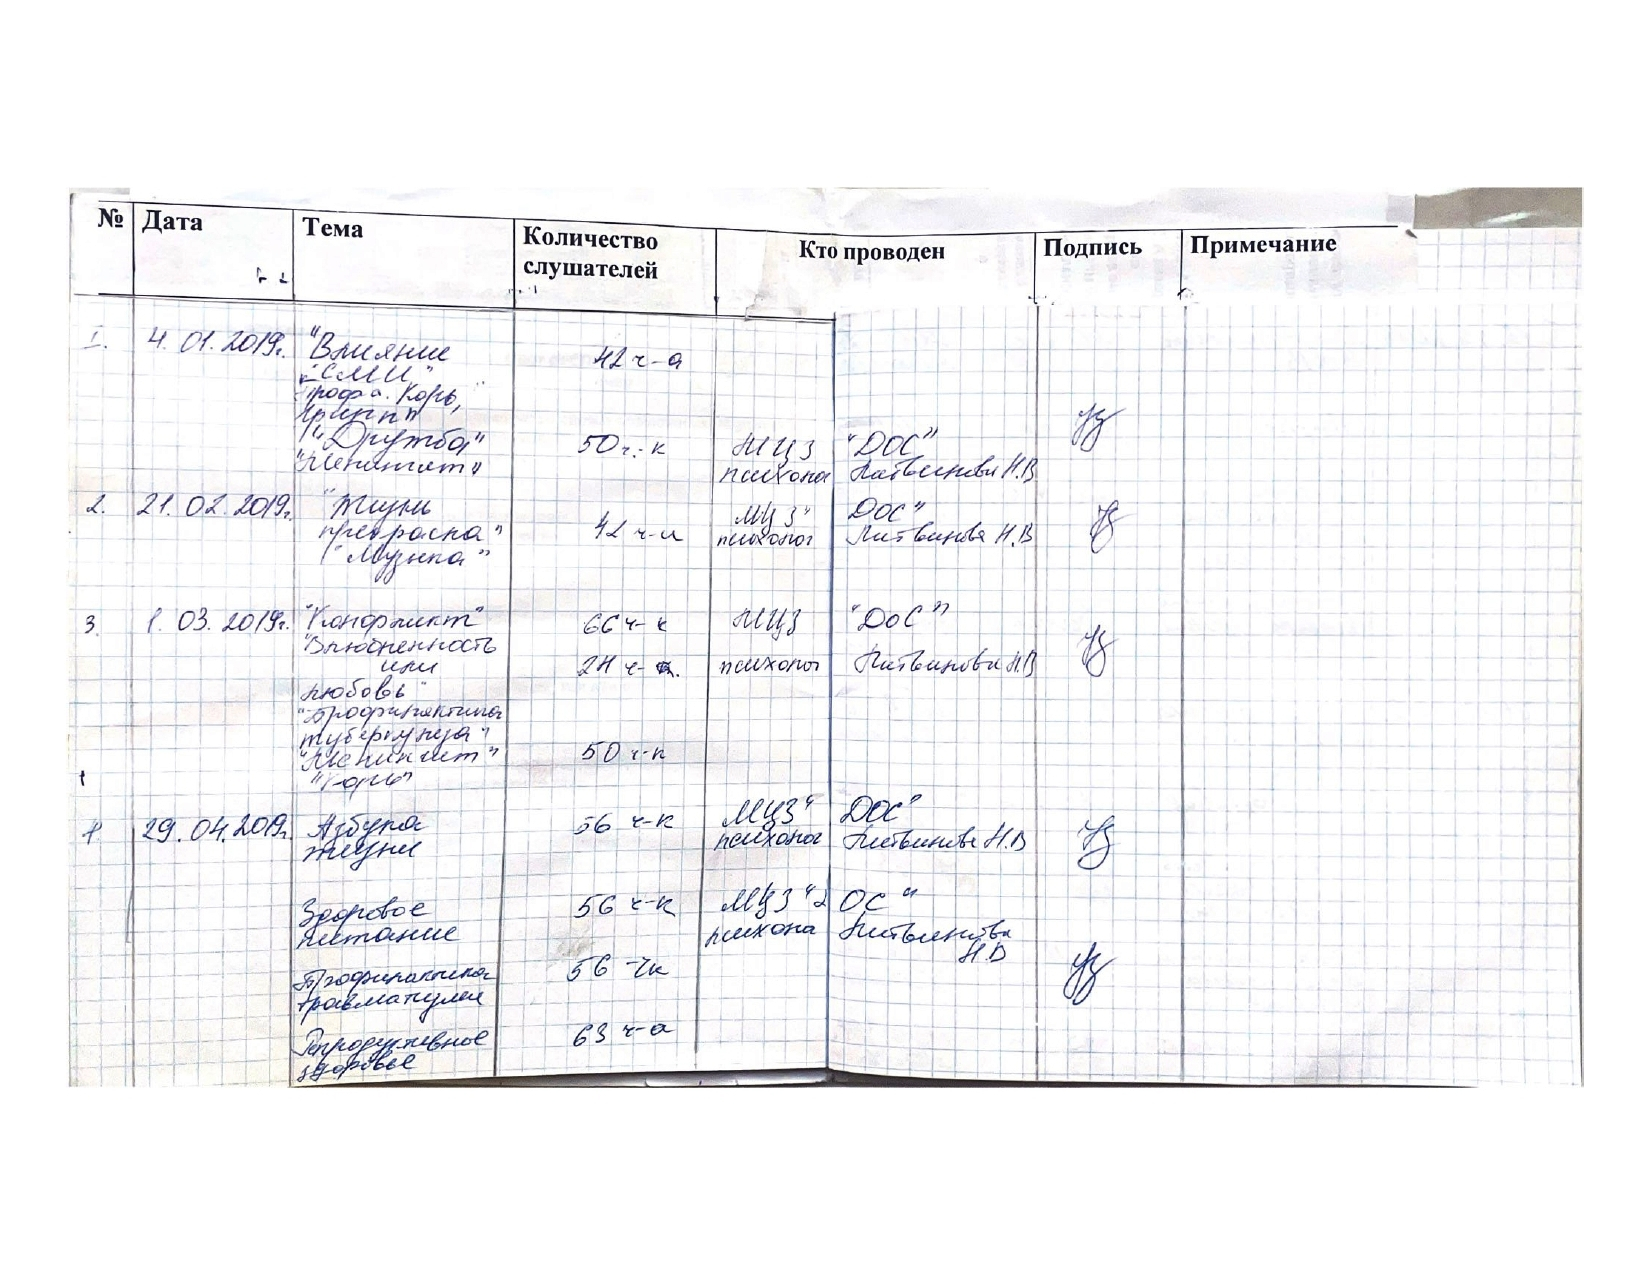 № Дата Тема Количество слушателей Кто проводен Подпись Примечание
I. 4. 01. 2019г. "Влияние 42 ч-а
"СМИ"
Проф-а. Корь,
Грипп"
"Дружба" 50 ч-к МЦЗ "ДОС"
"Менингит" психолог Литвинова Н.В
2. 21. 02. 2019г. "Жизнь МЦЗ" ДОС"
прекрасна" 42 ч-а психолог Литвинова Н.В
"Музыка"
3. 1. 03. 2019г. "Конфликт" 66 ч-к МЦЗ "ДОС"
"Влюбленность
или 24 ч- психолог Литвинова Н.В
любовь"
"Профилактика
туберкулеза"
"Менингит" 50 ч-к
"Корь"
29. 04. 2019г. Азбука 56 ч-к МЦЗ" ДОС"
жизни психолог Литвинова Н.В
Здоровое 56 ч-к МЦЗ "ДОС"
питание психолог Литвинова
Н.В
Профилактика 56 чк
травматизма
Репродуктивное 63 ч-а
здоровье